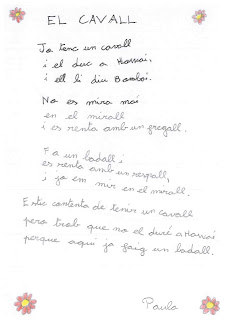 EL CAVALL
Jo tenc un cavall
i el duc a Hawai,
i ell li diu Bamboi.
No es mira mai
en el mirall
i es renta amb un fregall.
Fa un badall,
es renta amb un raspall,
i jo em mir en el mirall.
Estic contenta de tenir un cavall
pero trob que no el duré a Hawai
perque aquí ja faig un badall.
Paula